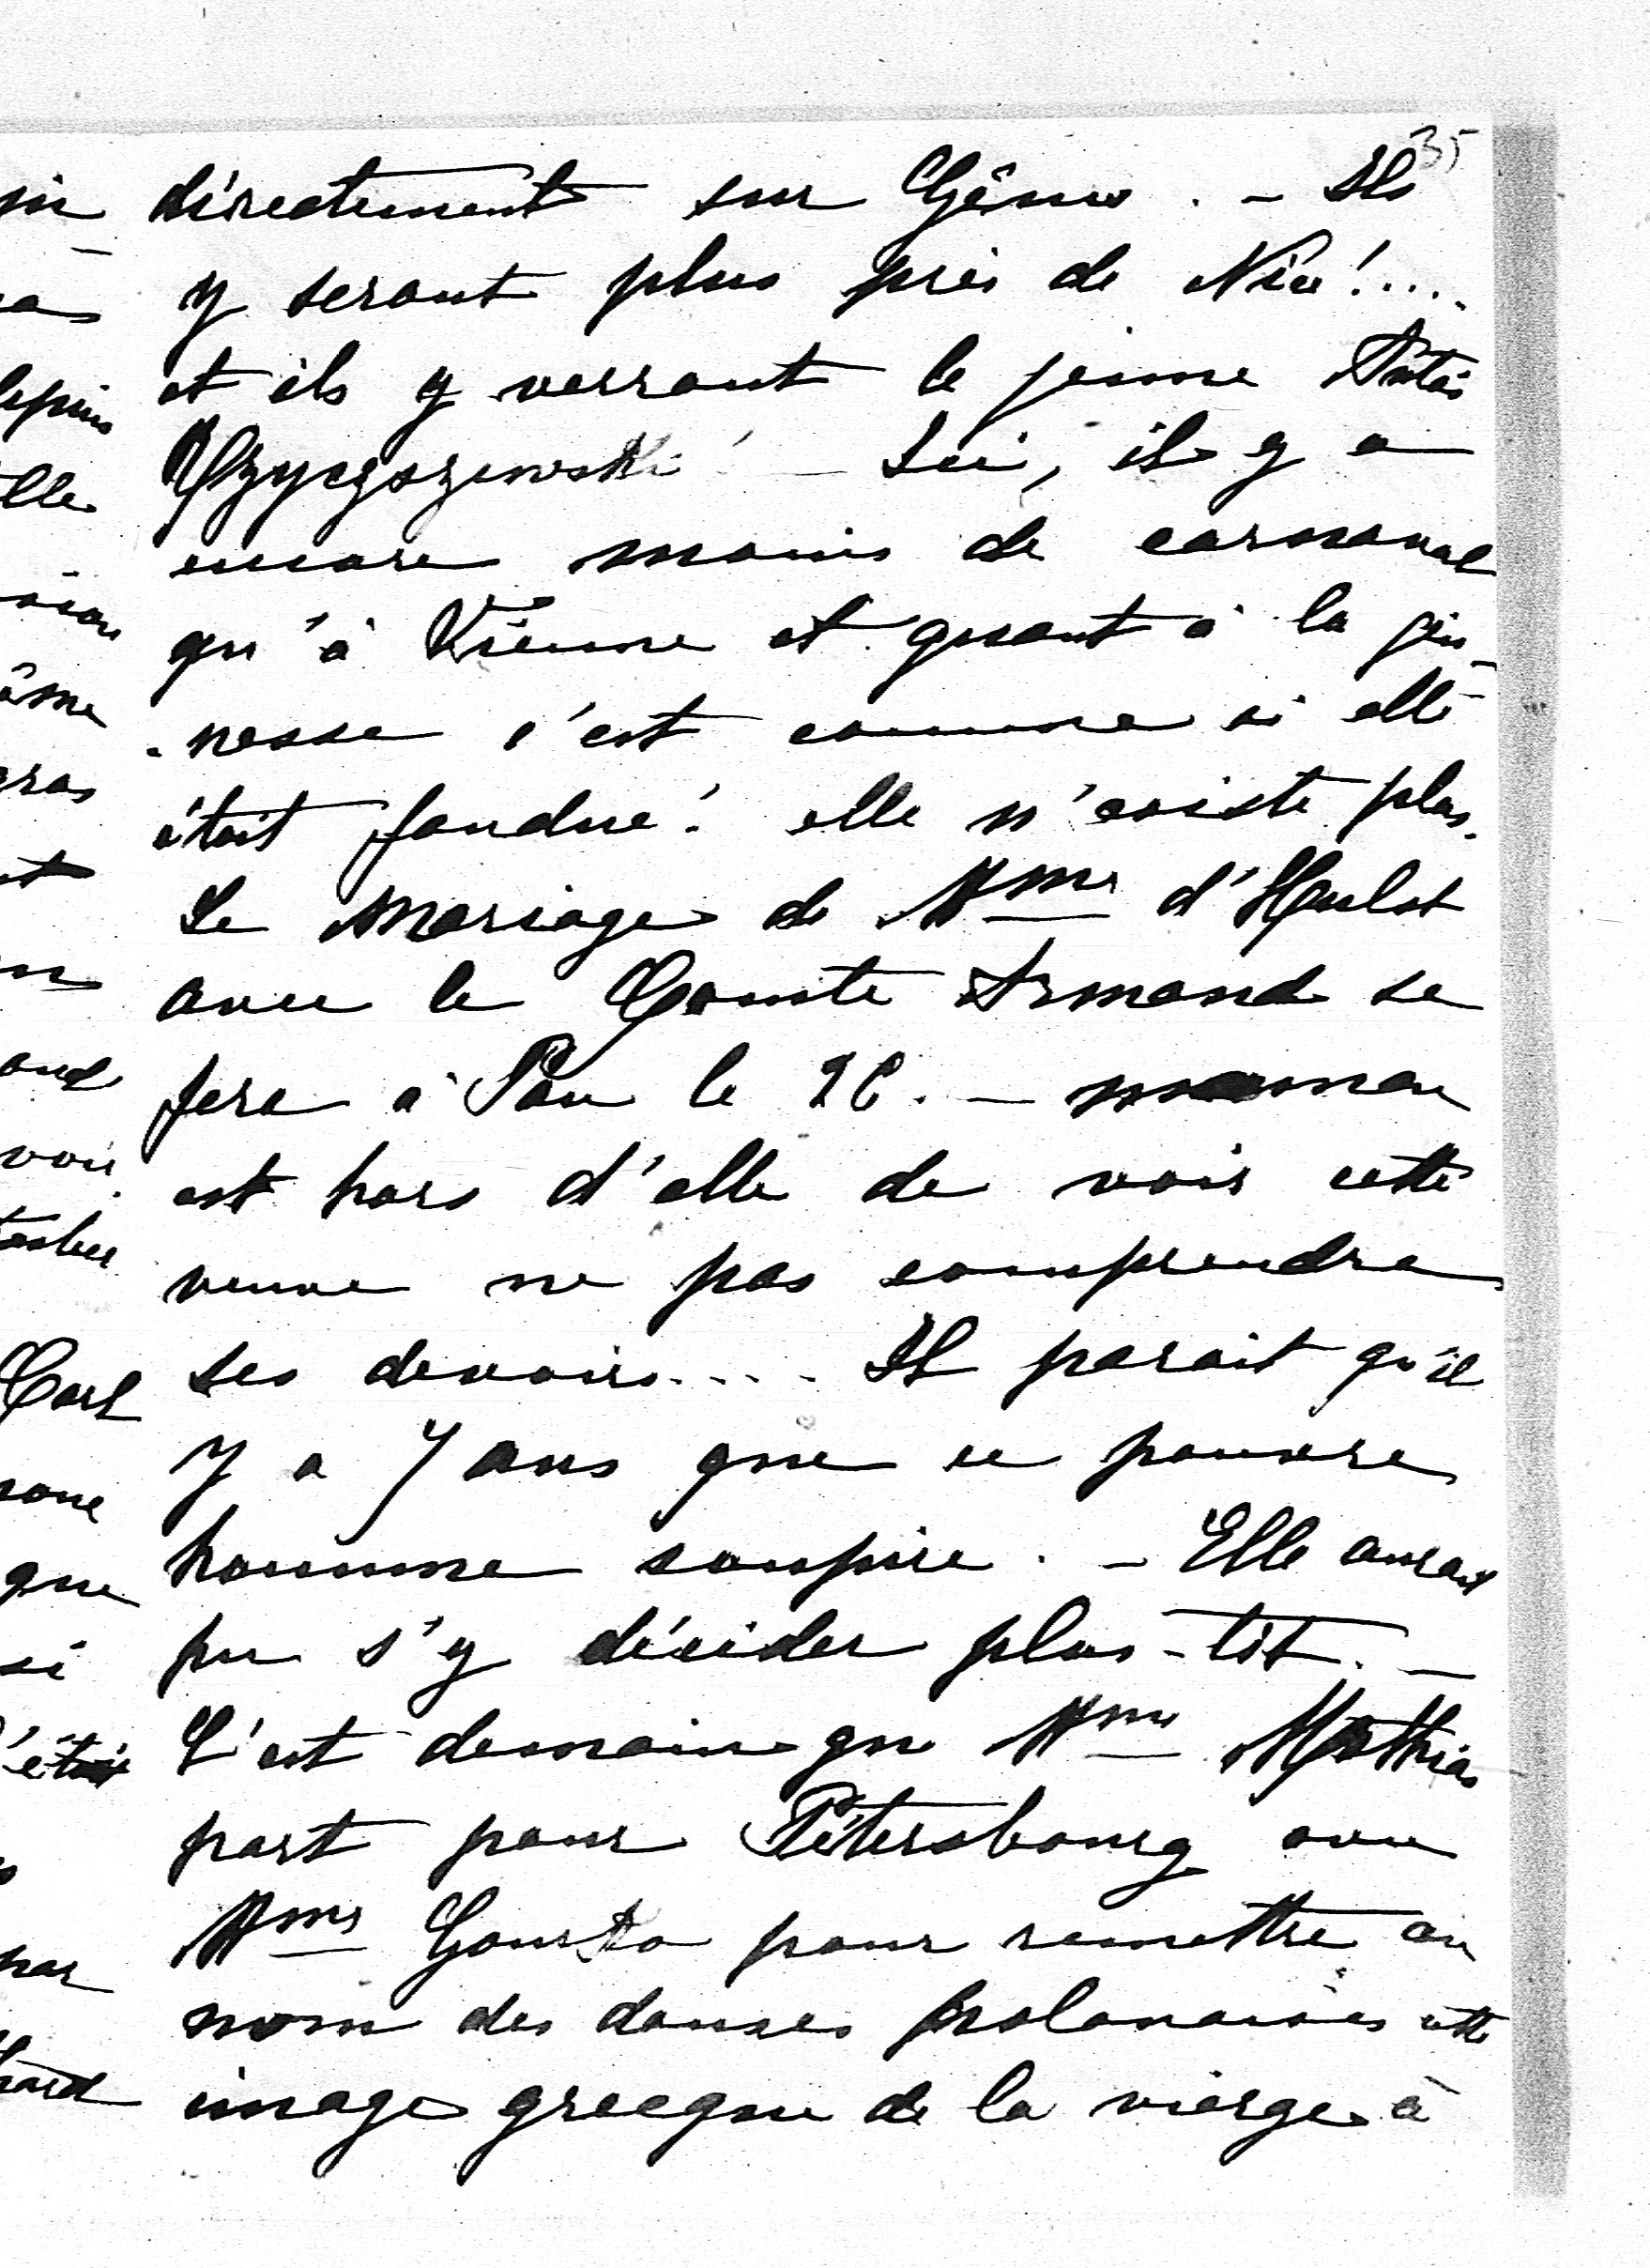 35
directement sur Gênes. - Ils
y seront plus près de Nice!....
et ils y verront le jeune
- Ici, il y a
encore moins de carnaval
qu'à Vienne et quant à la jeu-
-nesse c'est comme si elle
était fondue! elle n'existe plus.
Le mariage de Mme d'Hulst
avec le Comte Armand se
fera à Pau le - maman
est hors d'elle de voir cette
veuve ne pas comprendre
ses devoirs.... Il parait qu'il
y a 7 ans que ce pauvre
homme soupire. - Elle aurait
pu s'y décider plus-tôt. -
C'est demain que Mme Mathias
part pour Pétersbourg avec
Mme pour remettre au
nom des dames polonaises cette
image grecque de la vierge à